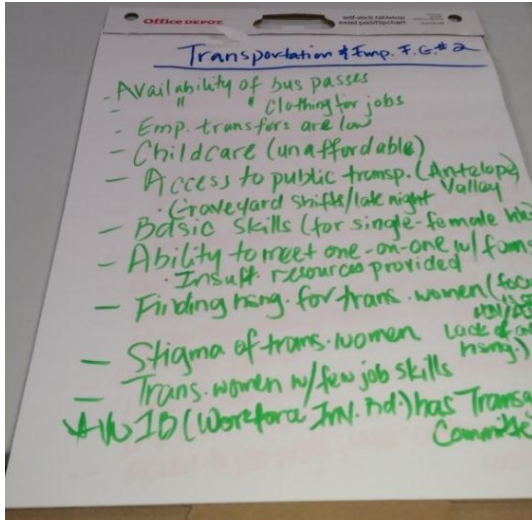 Office DEPOT
self-stick tabletop
easel pad/flipchart
Transportation & Emp. F.G. #2
- Availability of bus passes
- " " Clothing for jobs
- Emp. transfers are low
- Childcare (unaffordable)
- Access to public transp. (Antelope Valley)
· Graveyard shifts/late night
- Basic skills (for single-female
- Ability to meet one-on-one w/ fams
· Insuft. resources provided
- Finding hsng. for trans. women
Lack of
hsng.)
- Stigma of trans. women
- Trans. women w/ few job skills
* WIB (Workforce Inv. Bd.) has